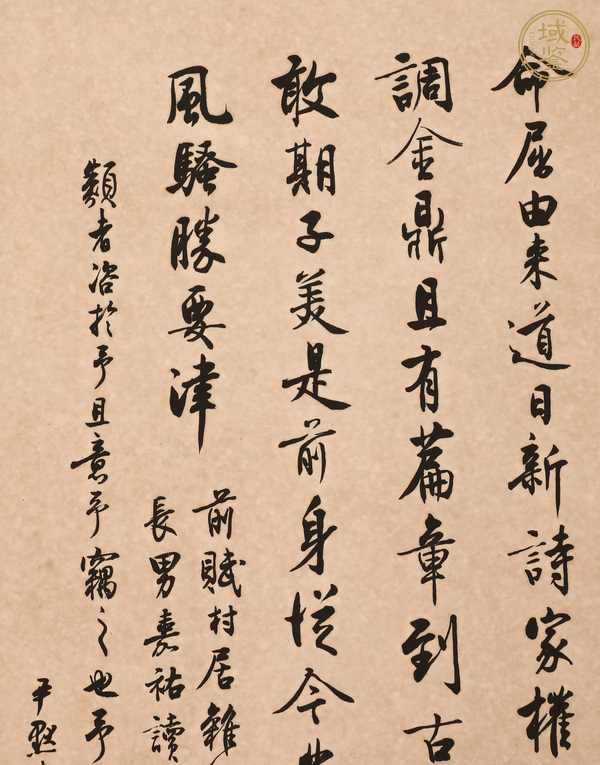 命屈由来道日新詩家權
調金鼎且有篇章到古
敢期子美是前身從今
風騷勝要津
前賦村居雜
長男嘉祐讀
類者咨於予且意予竊之也予
尹默
域鉴